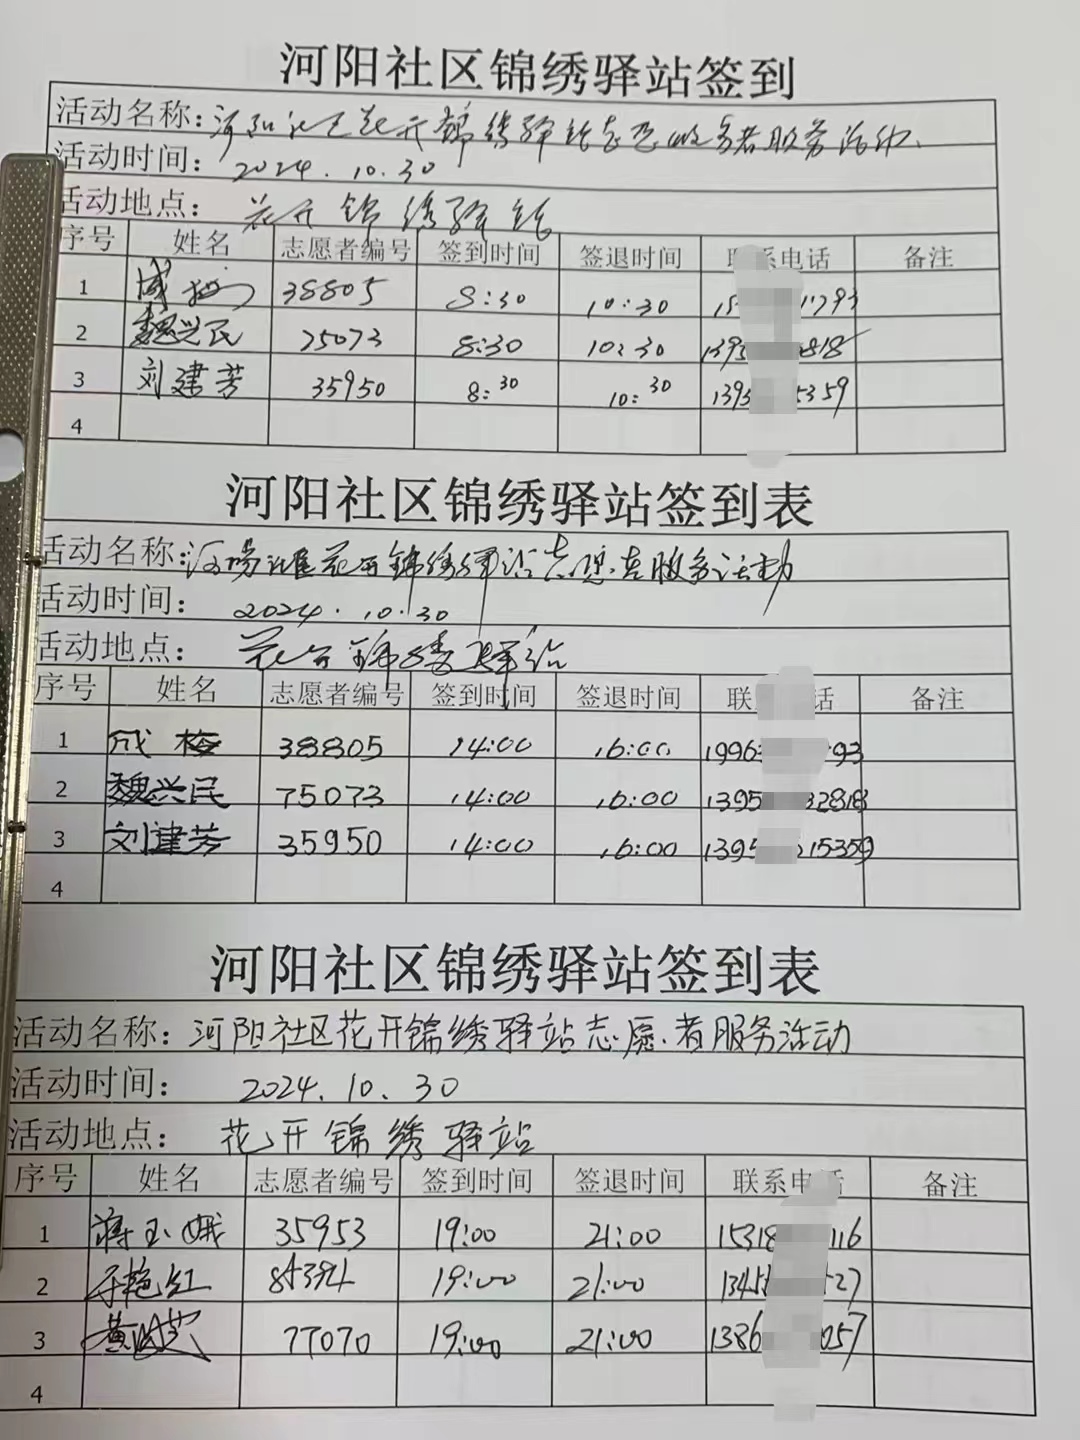 河阳社区锦绣驿站签到
活动名称：河阳社区花开锦绣驿站志愿服务者服务活动.
活动时间： 2024.10.30
活动地点： 花开锦绣驿站
序号 姓名 志愿者编号 签到时间 签退时间 联系电话 备注
1 成梅 38805 8:30 10:30 793
2 魏兴民 75073 8:30 10:30 1395 818
3 刘建芳 35950 8:30 10:30 1395 5359
4
河阳社区锦绣驿站签到表
活动名称：河阳社区花开锦绣驿站志愿者服务活动
活动时间： 2024.10.30
活动地点： 花开锦绣驿站
序号 姓名 志愿者编号 签到时间 签退时间 联 话 备注
1 成梅 38805 14:00 16:00 1996 93
2 魏兴民 75073 14:00 16:00 1395 32818
3 刘建芳 35950 14:00 16:00 1395 15359
4
河阳社区锦绣驿站签到表
活动名称：河阳社区花开锦绣驿站志愿者服务活动
活动时间： 2024.10.30
活动地点： 花开锦绣驿站
序号 姓名 志愿者编号 签到时间 签退时间 联系电话 备注
1 蒋玉娥 35953 19:00 21:00 15318 116
2 于艳红 85394 19:00 21:00 1345 27
3 黄 77070 19:00 21:00 1386 057
4